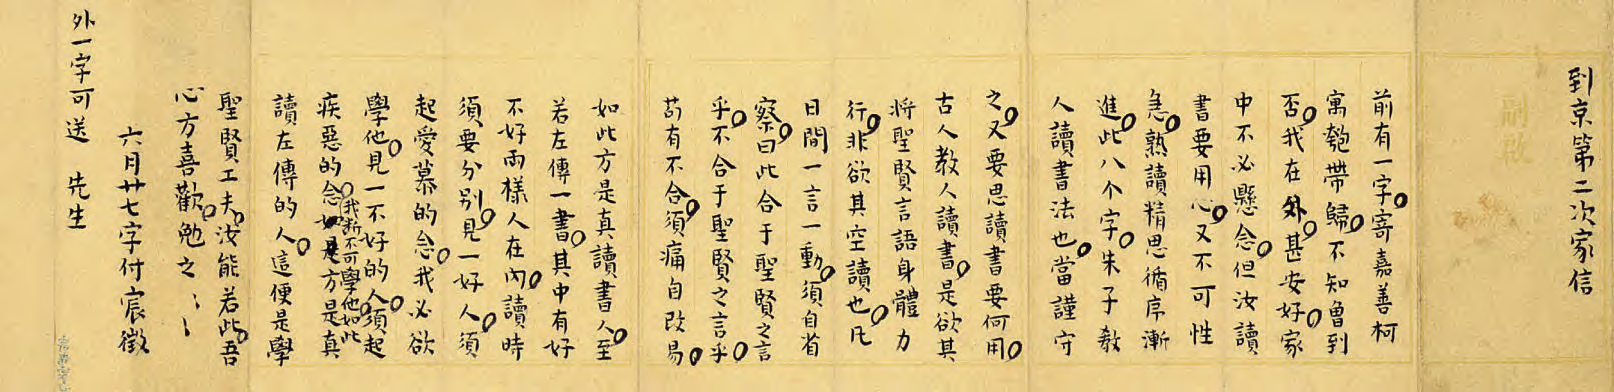 到京第二次家信
前有一字寄嘉善柯
寓匏帶歸不知曾到
否我在外甚安好家
中不必懸念但汝讀
書要用心又不可性
急熟讀精思循序漸
進此八个字朱子教
人讀書法也當謹守
之又要思讀書要何用
古人教人讀書是欲其
將聖賢言語身體力
行非欲其空讀也凡
日間一言一動須自省
察曰此合于聖賢之言
乎不合于聖賢之言乎
苟有不合須痛自改易
如此方是真讀書人至
若左傳一書其中有好
不好兩樣人在內讀時
須要分別見一好人須
起愛慕的念我必欲
學他見一不好的人須起
疾惡的念我斷不可學他如此方是真
讀左傳的人這便是學
聖賢工夫汝能若此吾
心方喜歡勉之
六月廿七字付宸徵
外一字可送 先生
副啟